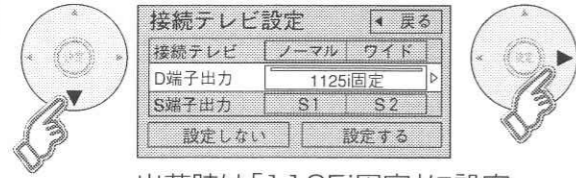 接続テレビ設定 ◀ 戻る
接続テレビ ノーマル ワイド
D端子出力 1125i固定
S端子出力 S1 S2
設定しない 設定する